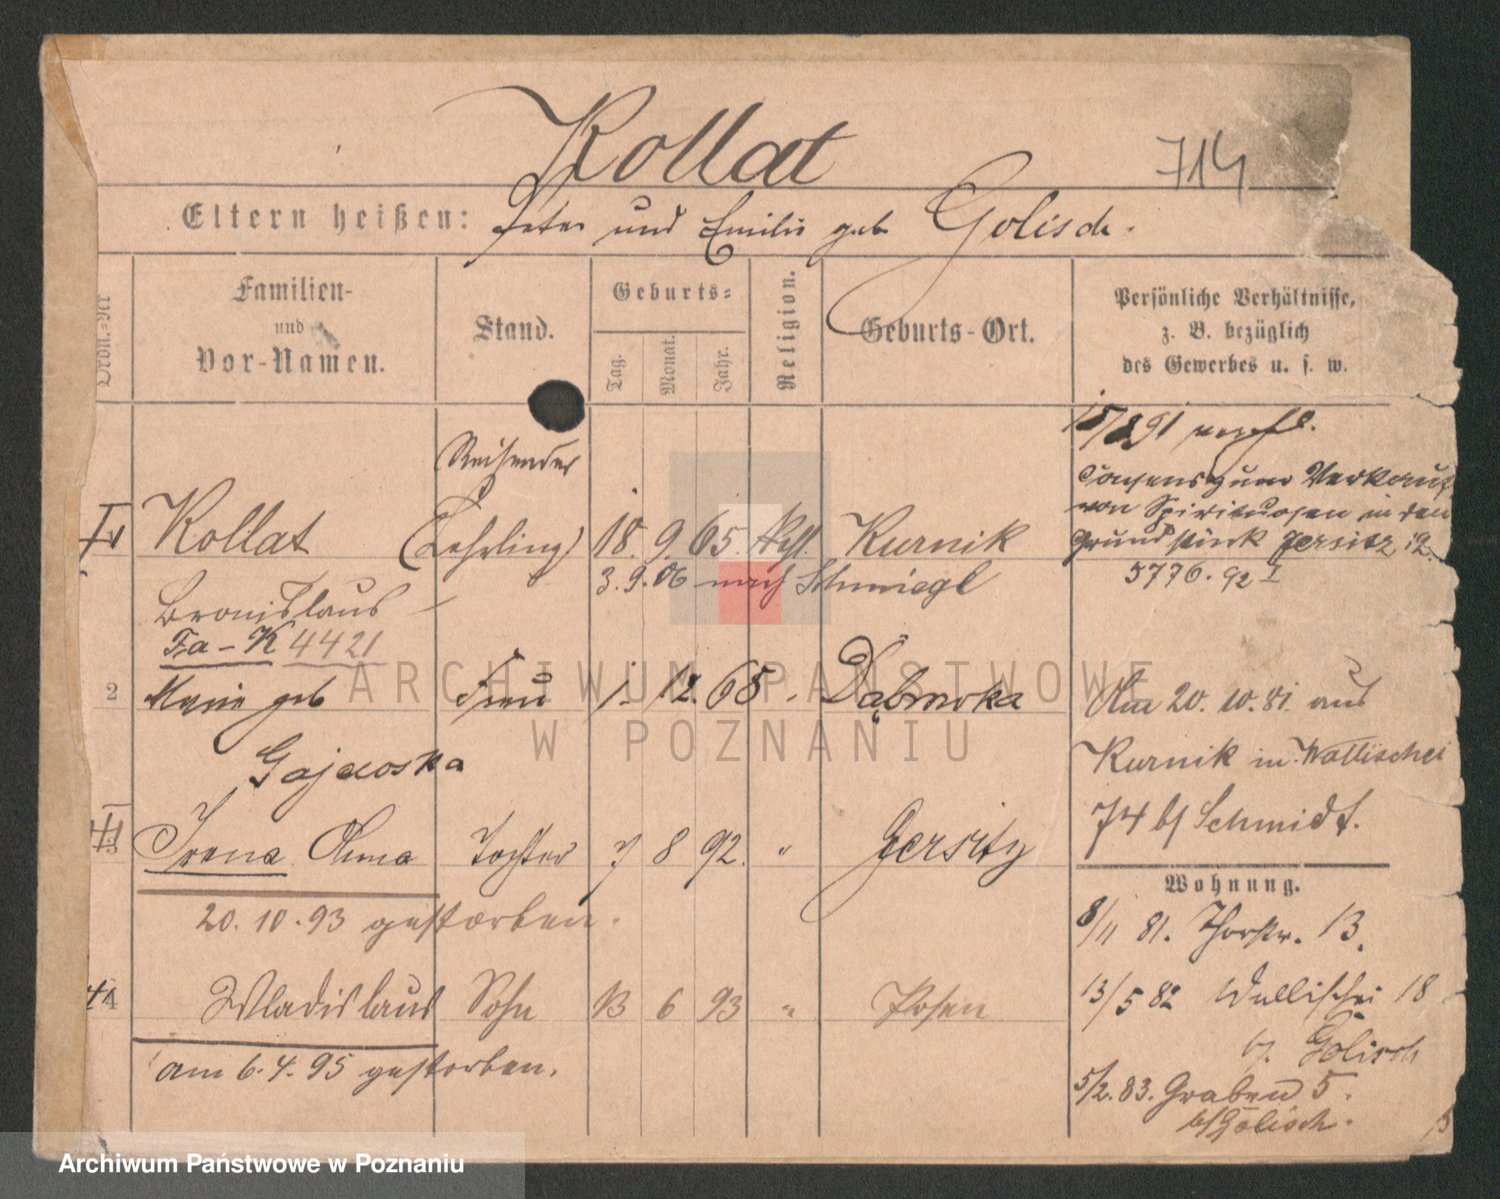 Kollat
714
Eltern heißen: Peter und Emilie geb Golisch.
Ordn.-Nr
Familien-
und
Vor-Namen.
Stand.
Geburts-
Tag.
Monat.
Jahr.
Religion.
Geburts-Ort.
Persönliche Verhältnisse,
z. B. bezüglich
des Gewerbes u. s. w.
Reisender
I Kollat (Lehrling) 18. 9. 65. Kath. Kurnik
Bronislaus
3. 9. 06 nach Schmiegel
Fa-K 4421
2 Marie geb Frau 1. 12. 68 Dąbrowka
Gajewska
3 Irena Anna Tochter 7 8 92. " Jersitz
20. 10. 93 gestorben.
4 Wladislaus Sohn 13 6 93 " Posen
am 6. 4. 95 gestorben.
15/8 91
Consens zum Verkauf
von Spirituosen in dem
Grundstück Jersitz 12.
5776. 92 I
Am 20. 10. 81. aus
Kurnik in Wallischei
74 b/ Schmidt.
Wohnung.
8/11 81. Thorstr. 13.
13/5 82 Wallischei 18
b/. Golisch
5/2. 83. Graben 5.
b/ Golisch.
ARCHIWUM PAŃSTWOWE
W POZNANIU
Archiwum Państwowe w Poznaniu